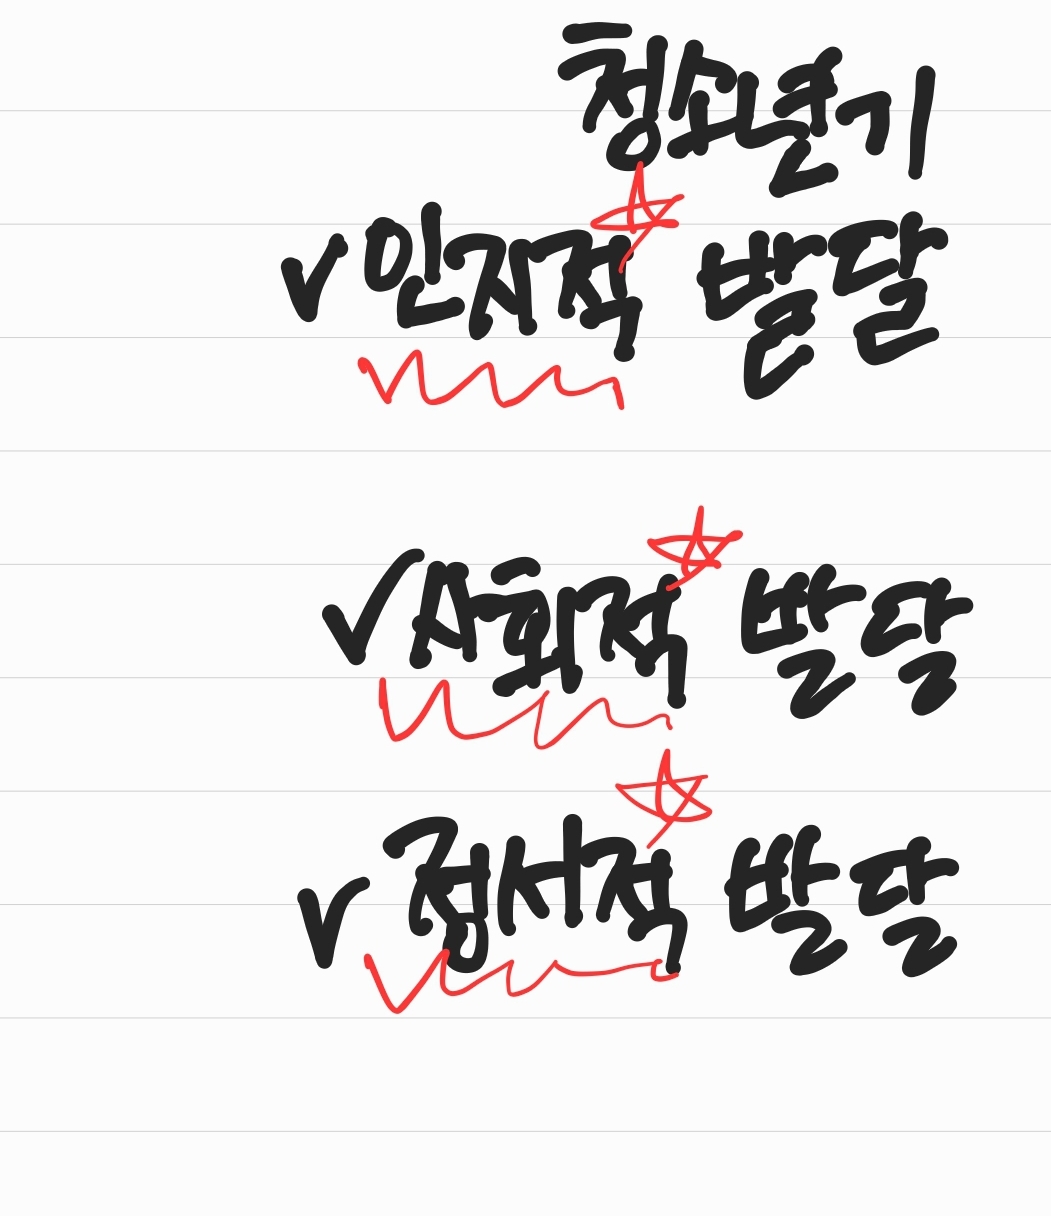 청소년기
✓인지적 발달
✓사회적 발달
✓정서적 발달